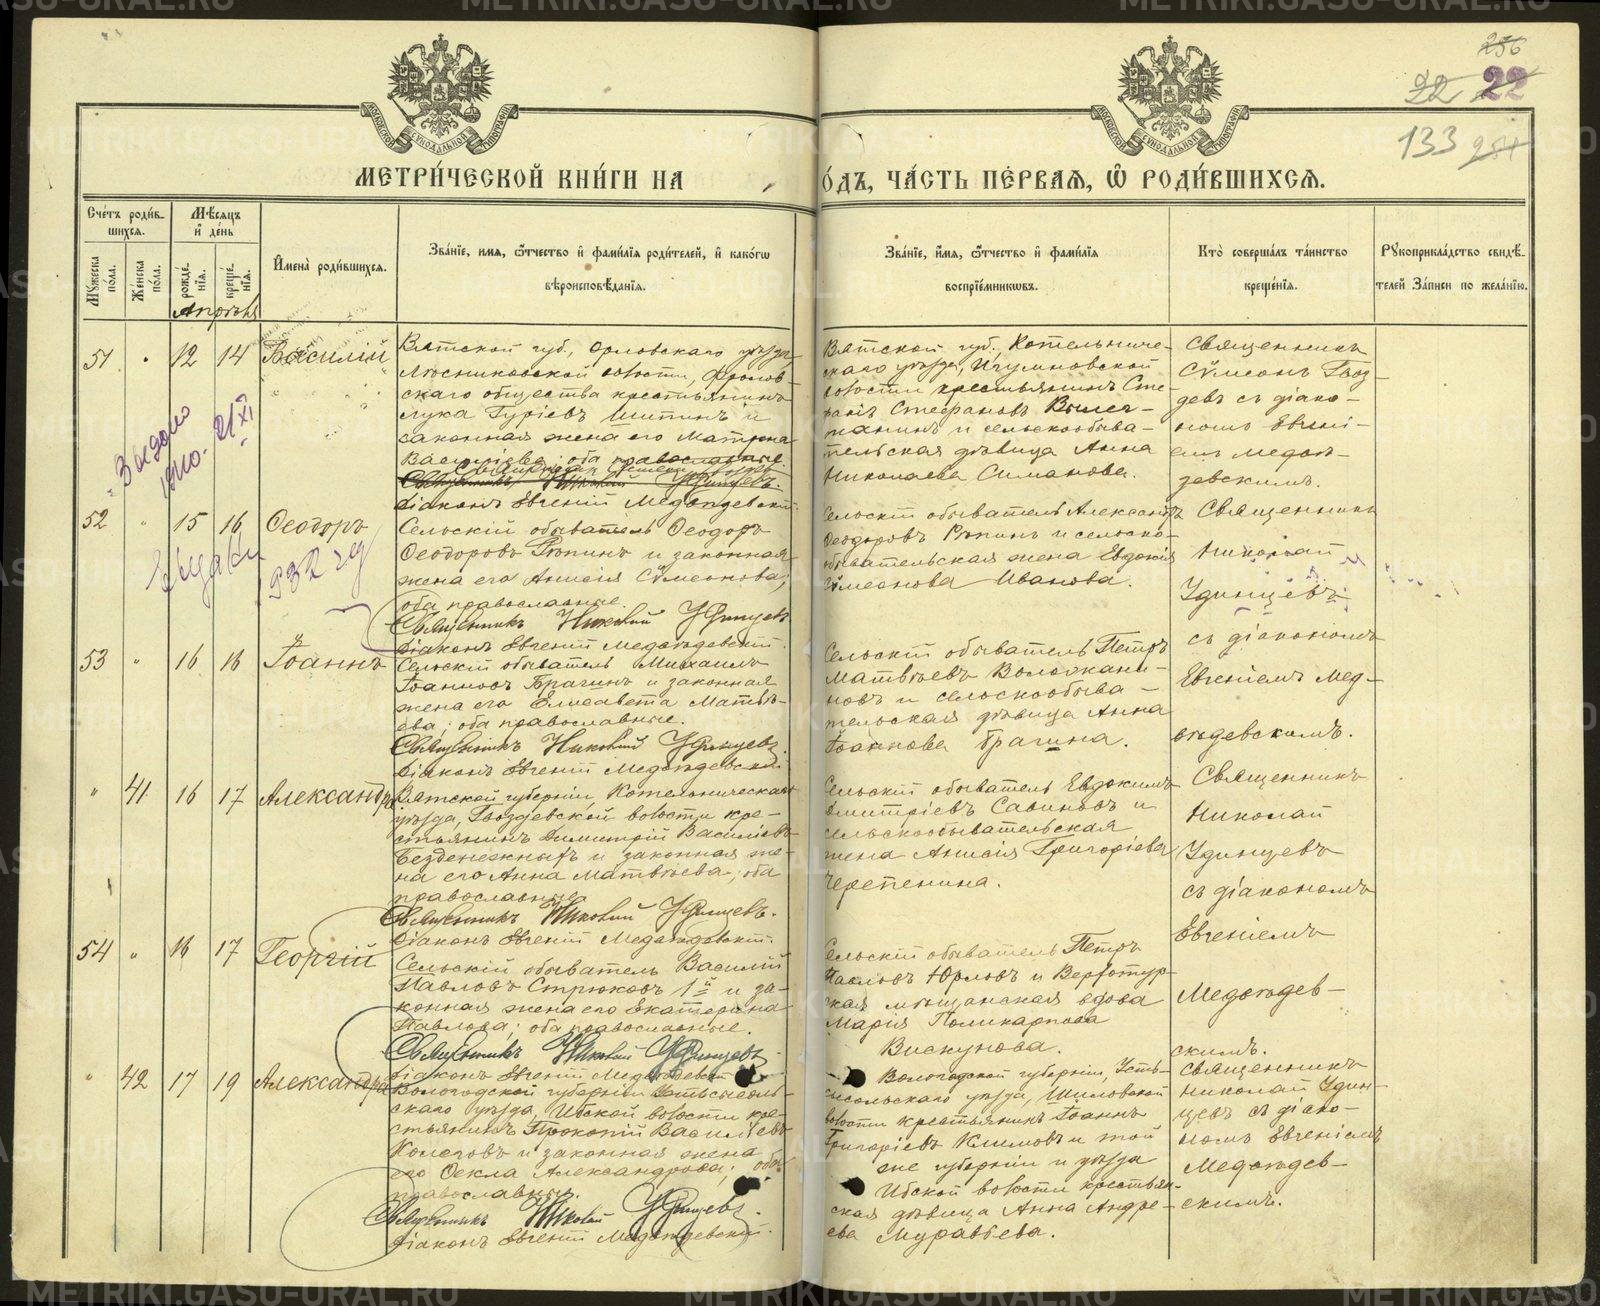 METRIKI.GASO-URAL.RU
256
22 22
133 254
МОСКОВСКОЙ СѴНОДАЛЬНОЙ ТИПОГРАФІИ
МОСКОВСКОЙ СѴНОДАЛЬНОЙ ТИПОГРАФІИ
МЕТРИ́ЧЕСКОЙ КНИ́ГИ НА
О́ДЪ, ЧА́СТЬ ПЕ́РВАѦ, Ѽ РОДИ́ВШИХСѦ.
Сче́тъ роди́в-
шихсѧ.
Мꙋ́жеска по́ла.
Же́нска по́ла.
Мѣ́сѧцъ и҆ де́нь
рожде́нїѧ.
креще́нїѧ.
Апрѣль
И҆мена̀ роди́вшихсѧ.
Зва́нїе, и҆́мѧ, ѻ҆́тчество и҆ фами́лїѧ роди́телей, и҆ како́гѡ
вѣроисповѣ́данїѧ.
Зва́нїе, и҆́мѧ, ѻ҆́тчество и҆ фами́лїѧ
воспрїе́мникѡвъ.
Кто̀ соверша́лъ та́инство
креще́нїѧ.
Рꙋкоприкла́дство свидѣ́-
телей за́писи по жела́нїю.
51 " 12 14 Василій
Вятской губ., Орловскаго уѣзда,
скаго общества крестьянинъ
Лука Гуріевъ Шипинъ и
законная жена его Матрона
Васильева; оба православные.
Діаконъ Евгеній Медвѣдевскій
Вятской губ., Котельниче-
скаго уѣзда,
волости крестьянинъ Сте-
фанъ Стефановъ
и сельскообыва-
тельская дѣвица Анна
Николаева Симанова.
Священникъ
Сѵмеонъ Гвоз-
девъ съ діако-
номъ Евгені-
емъ Медвѣ-
девскимъ.
1910. 21/XI
52 " 15 16 Ѳеодоръ
Сельскій обыватель Ѳеодоръ
Ѳеодоровъ Рѣпинъ и законная
жена его Анисія Сѵмеонова;
оба православные.
Священникъ Николай Удинцевъ
Діаконъ Евгеній Медвѣдевскій.
932 г
Сельскій обыватель Александръ
Ѳеодоровъ Рѣпинъ и сельско-
обывательская жена Евдокія
Сѵмеонова Иванова.
Священникъ
Николай
Удинцевъ
съ діакономъ
Евгеніемъ Мед-
вѣдевскимъ.
53 " 16 16 Іоаннъ
Сельскій обыватель Михаилъ
Іоанновъ Брагинъ и законная
жена его Елисавета Матвѣ-
ева; оба православные.
Священникъ Николай Удинцевъ.
Діаконъ Евгеній Медвѣдевскій
Сельскій обыватель Петръ
Матвѣевъ Воложани-
новъ и сельскообыва-
тельская дѣвица Анна
Іоаннова Брагина.
" 41 16 17 Александра
Вятской губерніи, Котельническаго
уѣзда, Гвоздевской волости кре-
стьянинъ Димитрій Василіевъ
Безденежныхъ и законная же-
на его Анна Матвѣева; оба
православные.
Священникъ Николай Удинцевъ.
Діаконъ Евгеній Медвѣдевскій.
Сельскій обыватель Евдокимъ
Димитріевъ Савиновъ и
сельскообывательская
жена Анисія Григоріева
Черепенина.
Священникъ
Николай
Удинцевъ
съ діакономъ
Евгеніемъ
Медвѣдев-
скимъ.
54 " 16 17 Георгій
Сельскій обыватель Василій
Павловъ Стрюковъ 1й и за-
конная жена его Екатерина
Павлова; оба православные.
Священникъ Николай Удинцевъ
Діаконъ Евгеній Медвѣдевскій
Сельскій обыватель Петръ
Павловъ Юрловъ и Верхотур-
ская мѣщанская вдова
Марія Поликарпова
Вискунова.
" 42 17 19 Александра
Вологодской губерніи Устьсысоль-
скаго уѣзда, Ибской волости кре-
стьянинъ Прокопій Василіевъ
и законная жена
его Ѳекла Александрова; оба
православные.
Священникъ Николай Удинцевъ.
Діаконъ Евгеній Медвѣдевскій.
Вологодской губерніи, Усть-
сысольскаго уѣзда, Шиловской
волости крестьянинъ Іоаннъ
Григоріевъ Климовъ и той
же губерніи и уѣзда
Ибской волости крестьян-
ская дѣвица Анна Андре-
ева Муравьева.
Священникъ
Николай Удин-
цевъ съ діако-
номъ Евгеніемъ
Медвѣдев-
скимъ.